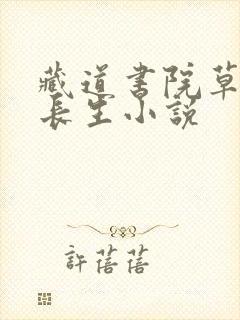 藏道书院草
長生小說
許蓓蓓